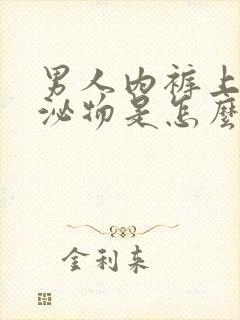 男人内裤上
泌物是怎麽
金利来